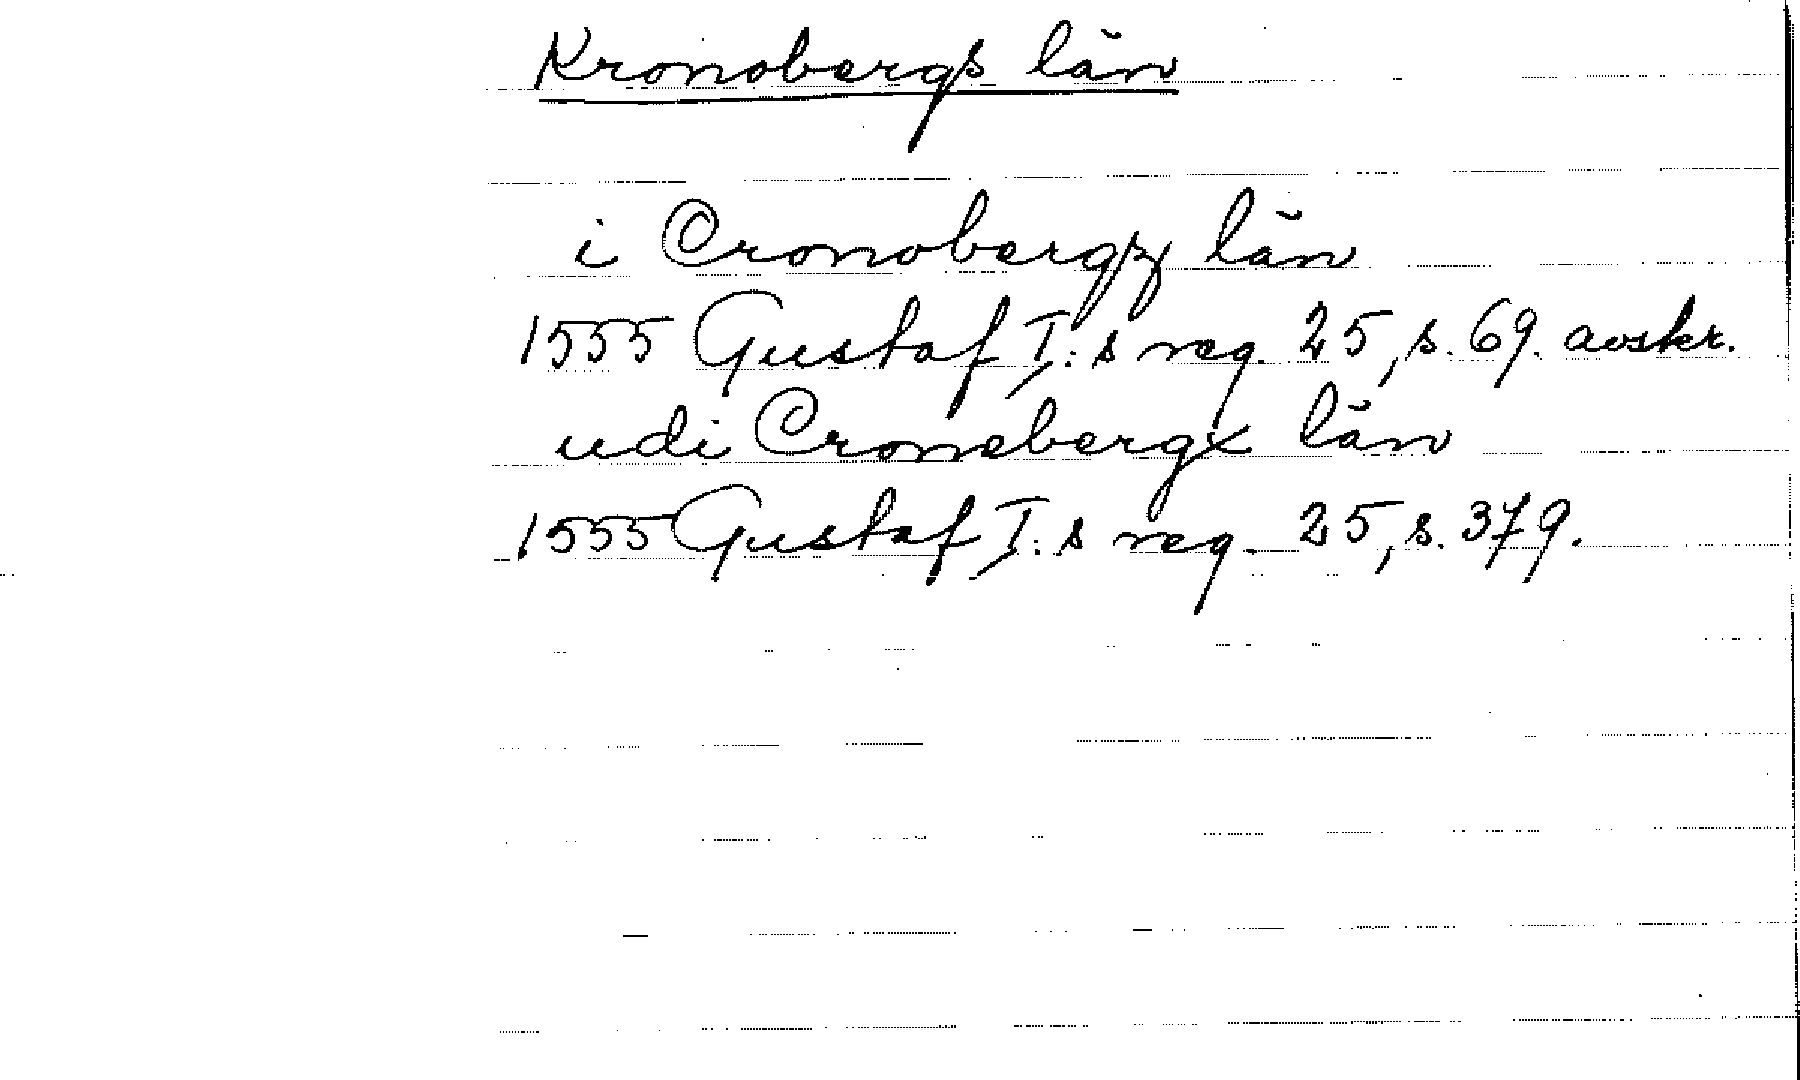 Kronobergs län
i Cronobergz län
1555 Gustaf I:s reg. 25, s. 69. avskr.
udi Cronebergx län
1555 Gustaf I:s reg. 25, s. 379.